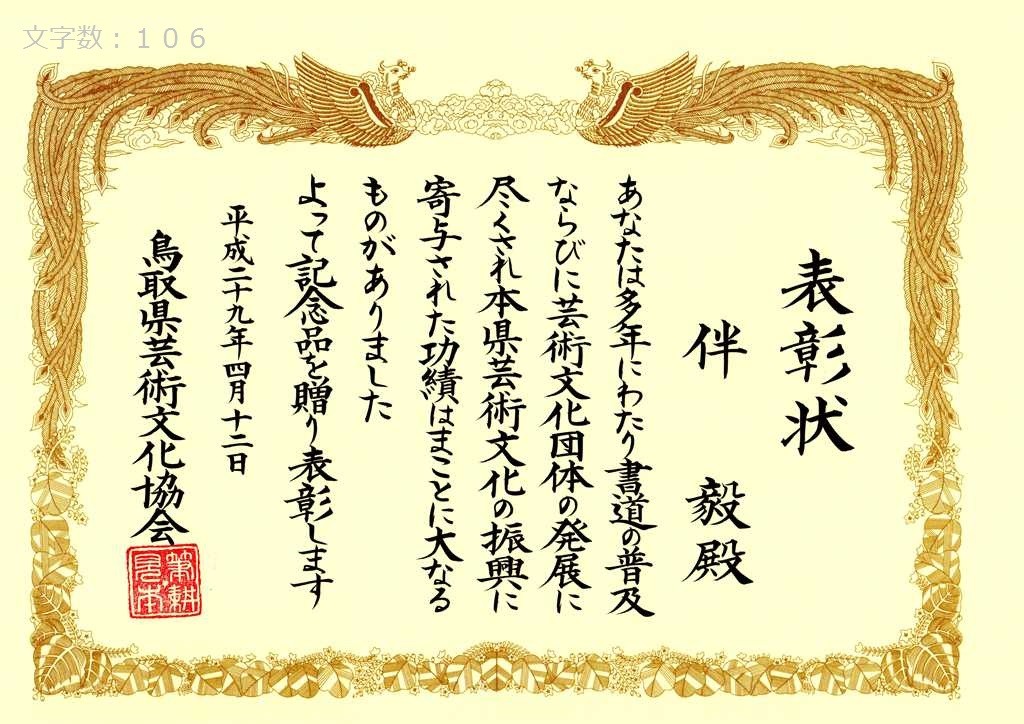 文字数：１０６
表彰状
伴 毅殿
あなたは多年にわたり書道の普及
ならびに芸術文化団体の発展に
尽くされ本県芸術文化の振興に
寄与された功績はまことに大なる
ものがありました
よって記念品を贈り表彰します
平成二十九年四月十二日
鳥取県芸術文化協会